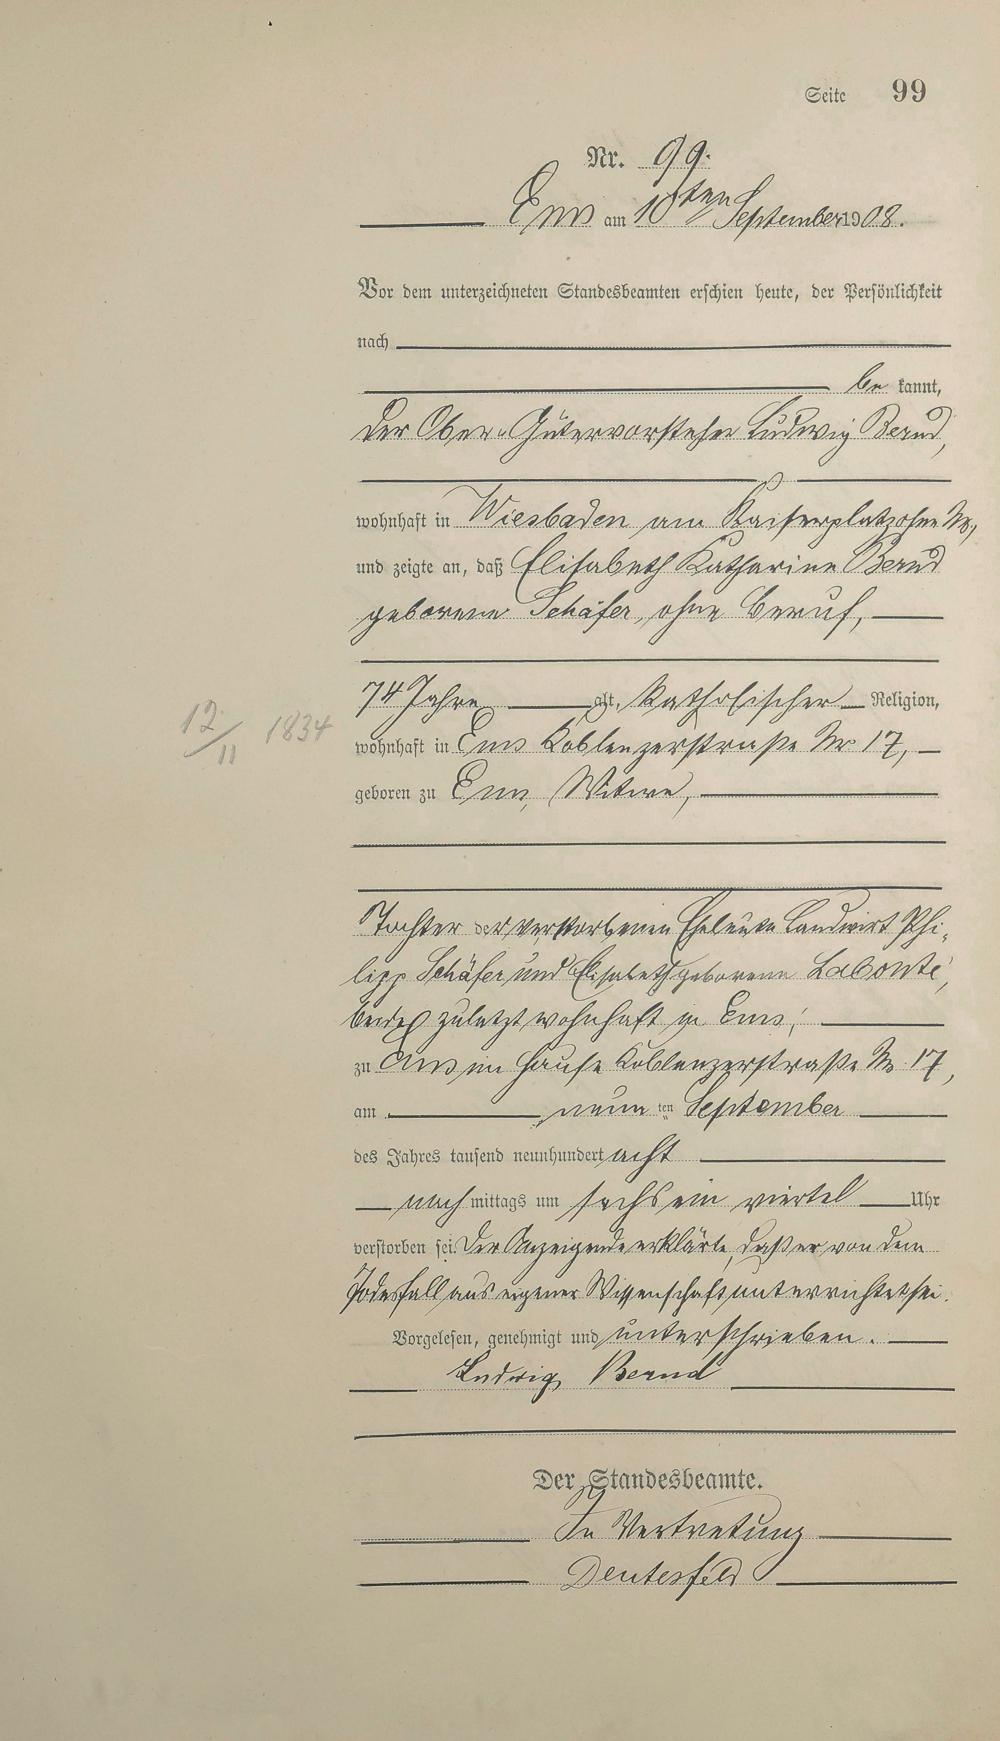 Seite 99
Nr. 99.
Ems am 10ten September 1908.
Vor dem unterzeichneten Standesbeamten erschien heute, der Persönlichkeit
nach
be kannt,
der Ober-Gütervorsteher Ludwig Bernd,
wohnhaft in Wiesbaden am Kaiserplatz ohne Nr.,
und zeigte an, daß Elisabeth Katharine Bernd
geborene Schäfer, ohne Beruf,
74 Jahre alt, katholischer Religion,
12/11 1834
wohnhaft in Ems Koblenzerstraße Nr. 17,
geboren zu Ems, Witwe,
Tochter der verstorbenen Eheleute Landwirt Phi-
lipp Schäfer und Elisabeth geborene Labonte,
beide zuletzt wohnhaft in Ems,
zu Ems im Hause Koblenzerstraße Nr. 17,
am neun ten September
des Jahres tausend neunhundert acht
nach mittags um sechs ein viertel Uhr
verstorben sei. Der Anzeigende erklärte, daß er von dem
Todesfall aus eigener Wissenschaft unterrichtet sei.
Vorgelesen, genehmigt und unterschrieben.
Ludwig Bernd
Der Standesbeamte.
In Vertretung